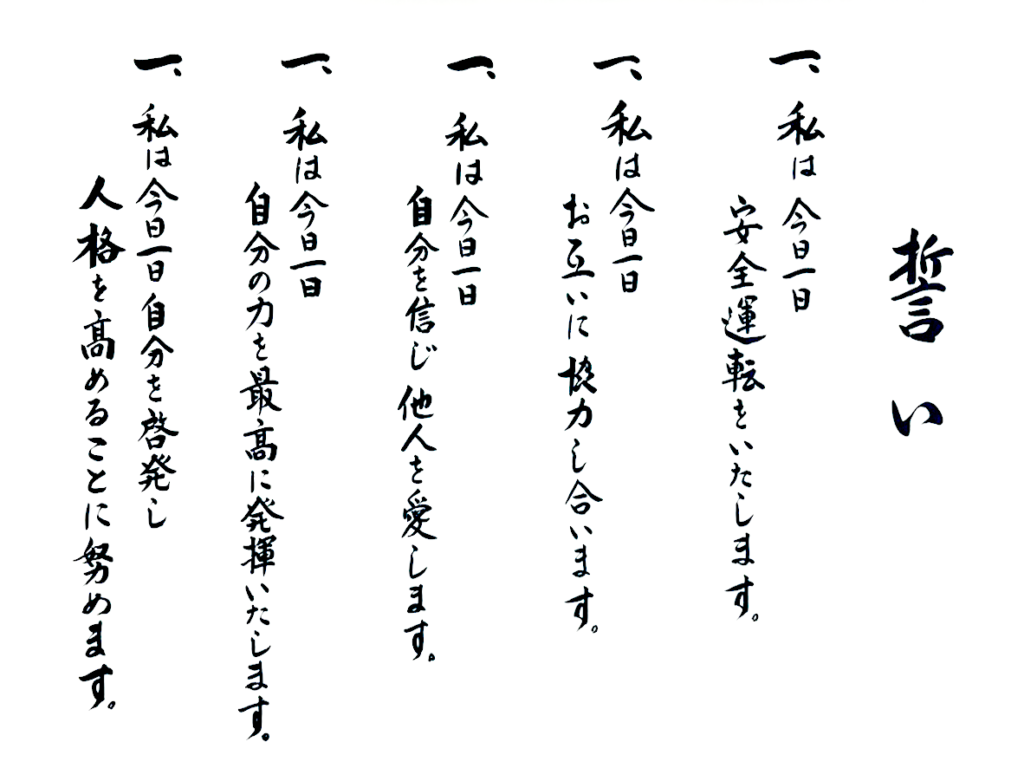 誓い
一、私は今日一日
安全運転をいたします。
一、私は今日一日
お互いに協力し合います。
一、私は今日一日
自分を信じ他人を愛します。
一、私は今日一日
自分の力を最高に発揮いたします。
一、私は今日一日自分を啓発し
人格を高めることに努めます。